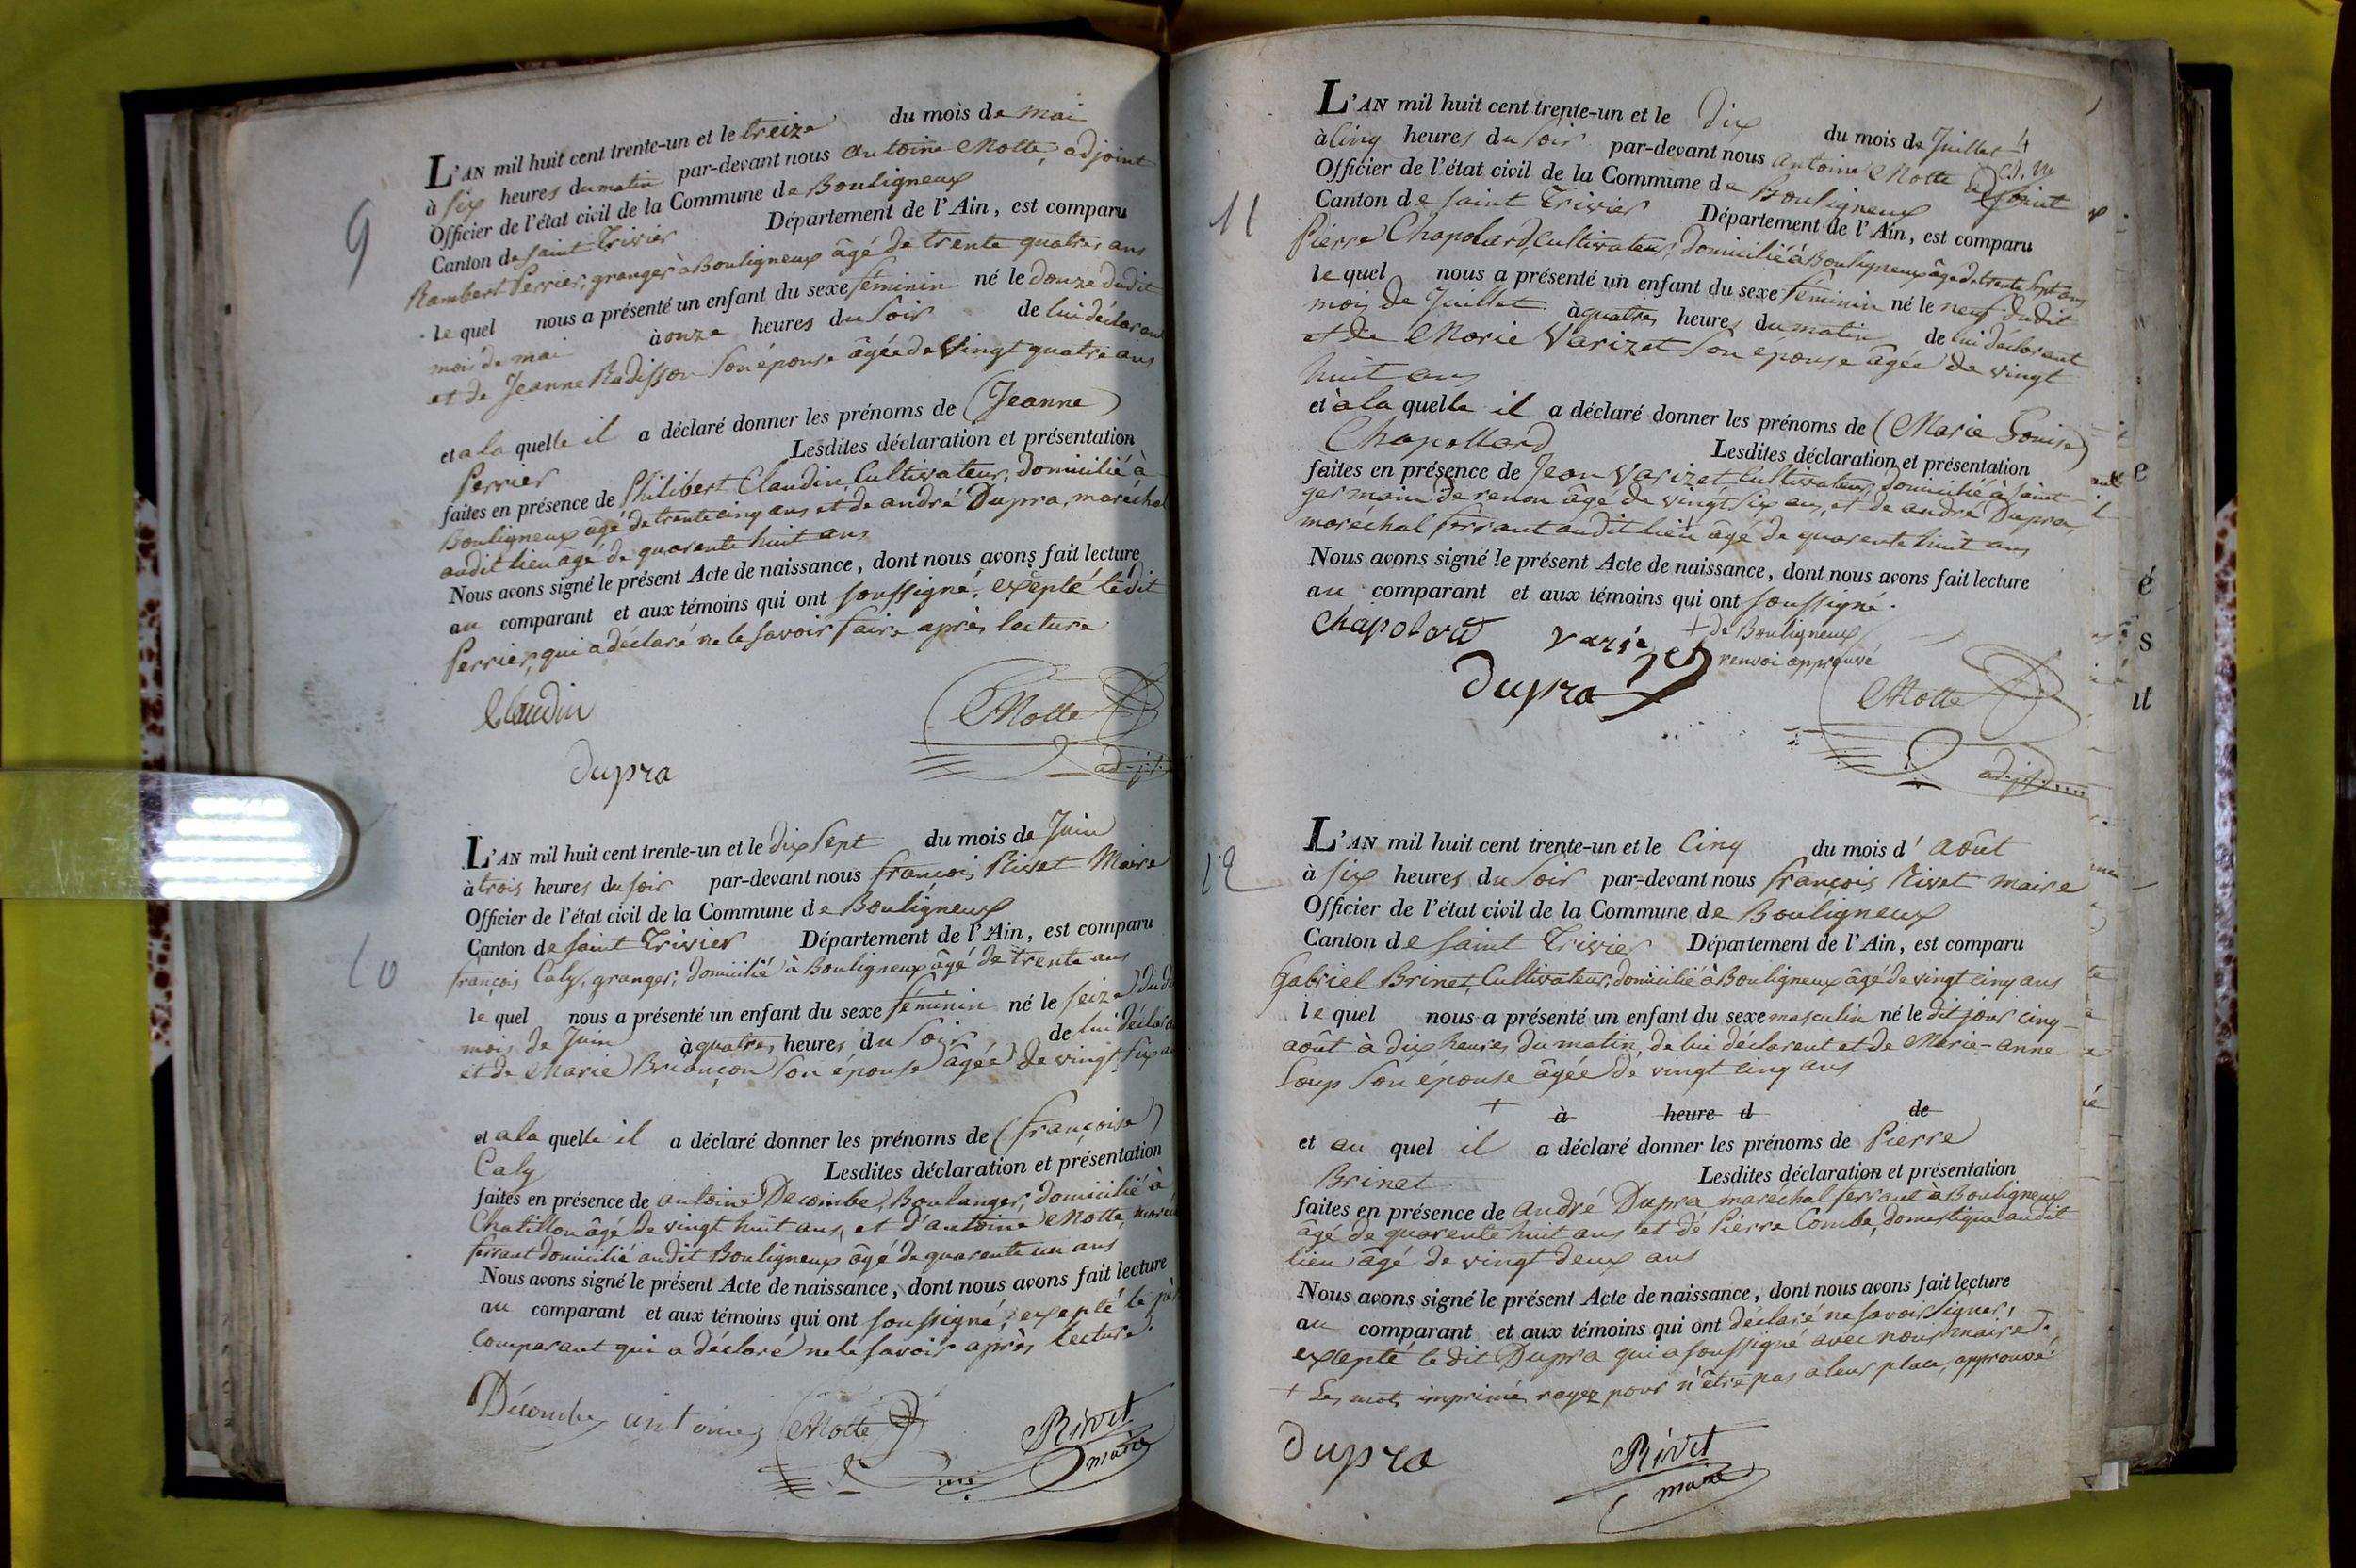 9
L'AN mil huit cent trente-un et le treize du mois de mai
à six heures du matin par-devant nous antoine Motte, adjoint
Officier de l'état civil de la Commune de Bouligneux
Canton de saint Trivier Département de l'Ain, est comparu
Rambert Perrier, granger à Bouligneux âgé de trente quatres ans
le quel nous a présenté un enfant du sexe féminin né le douze dudit
mois de mai à onze heures du soir de lui déclarant
et de Jeanne Radisson son épouse âgée de vingt quatre ans
et a la quelle il a déclaré donner les prénoms de (Jeanne)
Perrier Lesdites déclaration et présentation
faites en présence de Philibert Claudin, Cultivateur, domicilié à
Bouligneux âgé de trente cinq ans et de andré Dupra, maréchal
audit lieu âgé de quarente huit ans
Nous avons signé le présent Acte de naissance, dont nous avons fait lecture
au comparant et aux témoins qui ont soussigné, exepté ledit
Perrier, qui a déclaré ne le savoir faire après lecture
Claudin
Motte
adjt
dupra
10
L'AN mil huit cent trente-un et le dix sept du mois de Juin
à trois heures du soir par-devant nous françois Rivet Maire
Officier de l'état civil de la Commune de Bouligneux
Canton de saint Trivier Département de l'Ain, est comparu
françois Caly, granger, domicilié à Bouligneux âgé de trente ans
le quel nous a présenté un enfant du sexe féminin né le seize dudi
mois de Juin à quatres heures du soir de lui déclara
et de Marie Briançon son épouse âgée de vingt six a
et a la quelle il a déclaré donner les prénoms de (françoise)
Caly Lesdites déclaration et présentation
faites en présence de antoine Decombe, Boulanger, domicilié à
Chatillon âgé de vingt huit ans, et d'antoine Motte, maréc
ferrant domicilié audit Bouligneux âgé de quarente un ans
Nous avons signé le présent Acte de naissance, dont nous avons fait lecture
au comparant et aux témoins qui ont soussigné, exepté le
comparant qui a déclaré ne le savoir après lecture.
Décombe antoine Motte Rivet
maire
11
L'AN mil huit cent trente-un et le dix du mois de Juillet
à cinq heures du soir par-devant nous antoine Motte adjoint +
Officier de l'état civil de la Commune de Bouligneux
Canton de saint Trivier Département de l'Ain, est comparu
Pierre Chapolard, Cultivateur, domicilié à Bouligneux âgé de trente sept ans
le quel nous a présenté un enfant du sexe féminin né le neuf dudit
mois de Juillet à quatres heures du matin de lui déclarant
et de Marie Varizet son épouse âgée de vingt
huit ans
et à la quelle il a déclaré donner les prénoms de (Marie Louise)
Chapollard Lesdites déclaration et présentation
faites en présence de Jean Varizet, Cultivateur, domicilié à saint
germain de renon âgé de vingt six ans, et de andré Dupra,
maréchal ferrant audit lieu âgé de quarente huit ans
Nous avons signé le présent Acte de naissance, dont nous avons fait lecture
au comparant et aux témoins qui ont soussigné.
+ de Bouligneux
renvoi approuvé
Chapolard varizet
dupra
Motte
adjt
12
L'AN mil huit cent trente-un et le Cinq du mois d'août
à six heures du soir par-devant nous françois Rivet maire
Officier de l'état civil de la Commune de Bouligneux
Canton de saint Trivier Département de l'Ain, est comparu
Gabriel Brinet, Cultivateur, domicilié à Bouligneux âgé de vingt cinq ans
le quel nous a présenté un enfant du sexe masculin né le dit jour cinq
août à dix heures du matin, de lui déclarent et de Marie-anne
Loup son épouse âgée de vingt cinq ans
+ à heure d de
et au quel il a déclaré donner les prénoms de Pierre
Brinet Lesdites déclaration et présentation
faites en présence de andré Dupra maréchal ferrant à Bouligneux
âgé de quarente huit ans et de Pierre Combe, domestique audit
lieu âgé de vingt deux ans
Nous avons signé le présent Acte de naissance, dont nous avons fait lecture
au comparant et aux témoins qui ont déclaré ne savoir signer,
exepté le dit Dupra qui a soussigné avec nous maire.
+ Les mots imprimé rayez pour n'être pas a leur place, approuvé.
dupra
Rivet
maire